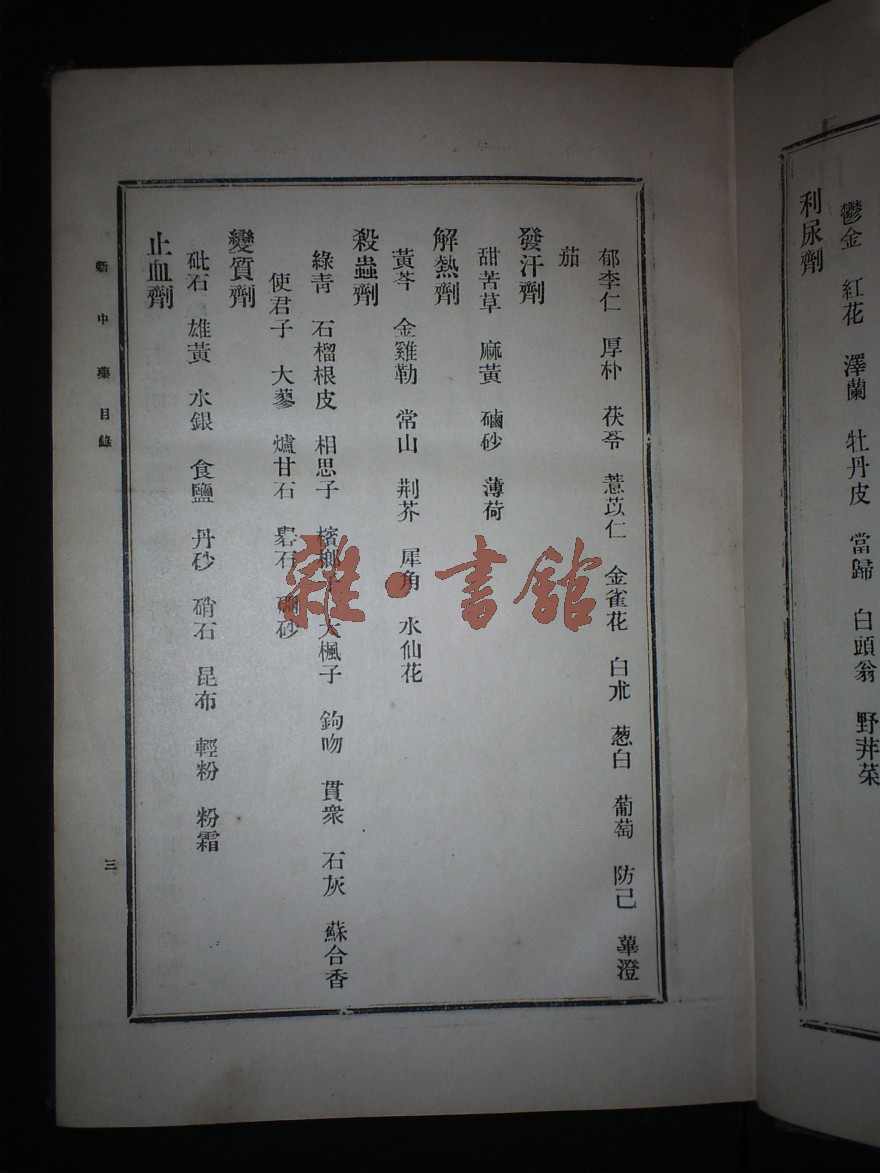 鬱金　紅花　澤蘭　牡丹皮　當歸　白頭翁　野菜
利尿劑
郁李仁　厚朴　茯苓　薏苡仁　金雀花　白朮　葱白　葡萄　防己　蓽澄
茄
發汗劑
甜苦草　麻黃　磠砂　薄荷
解熱劑
黃芩　金雞勒　常山　荆芥　犀角　水仙花
殺蟲劑
綠青　石榴根皮　相思子　檳榔子　大楓子　鉤吻　貫衆　石灰　蘇合香
使君子　大蓼　爐甘石　礜石　磠砂
變質劑
砒石　雄黃　水銀　食鹽　丹砂　硝石　昆布　輕粉　粉霜
止血劑
新中藥目錄
三
雜·書館